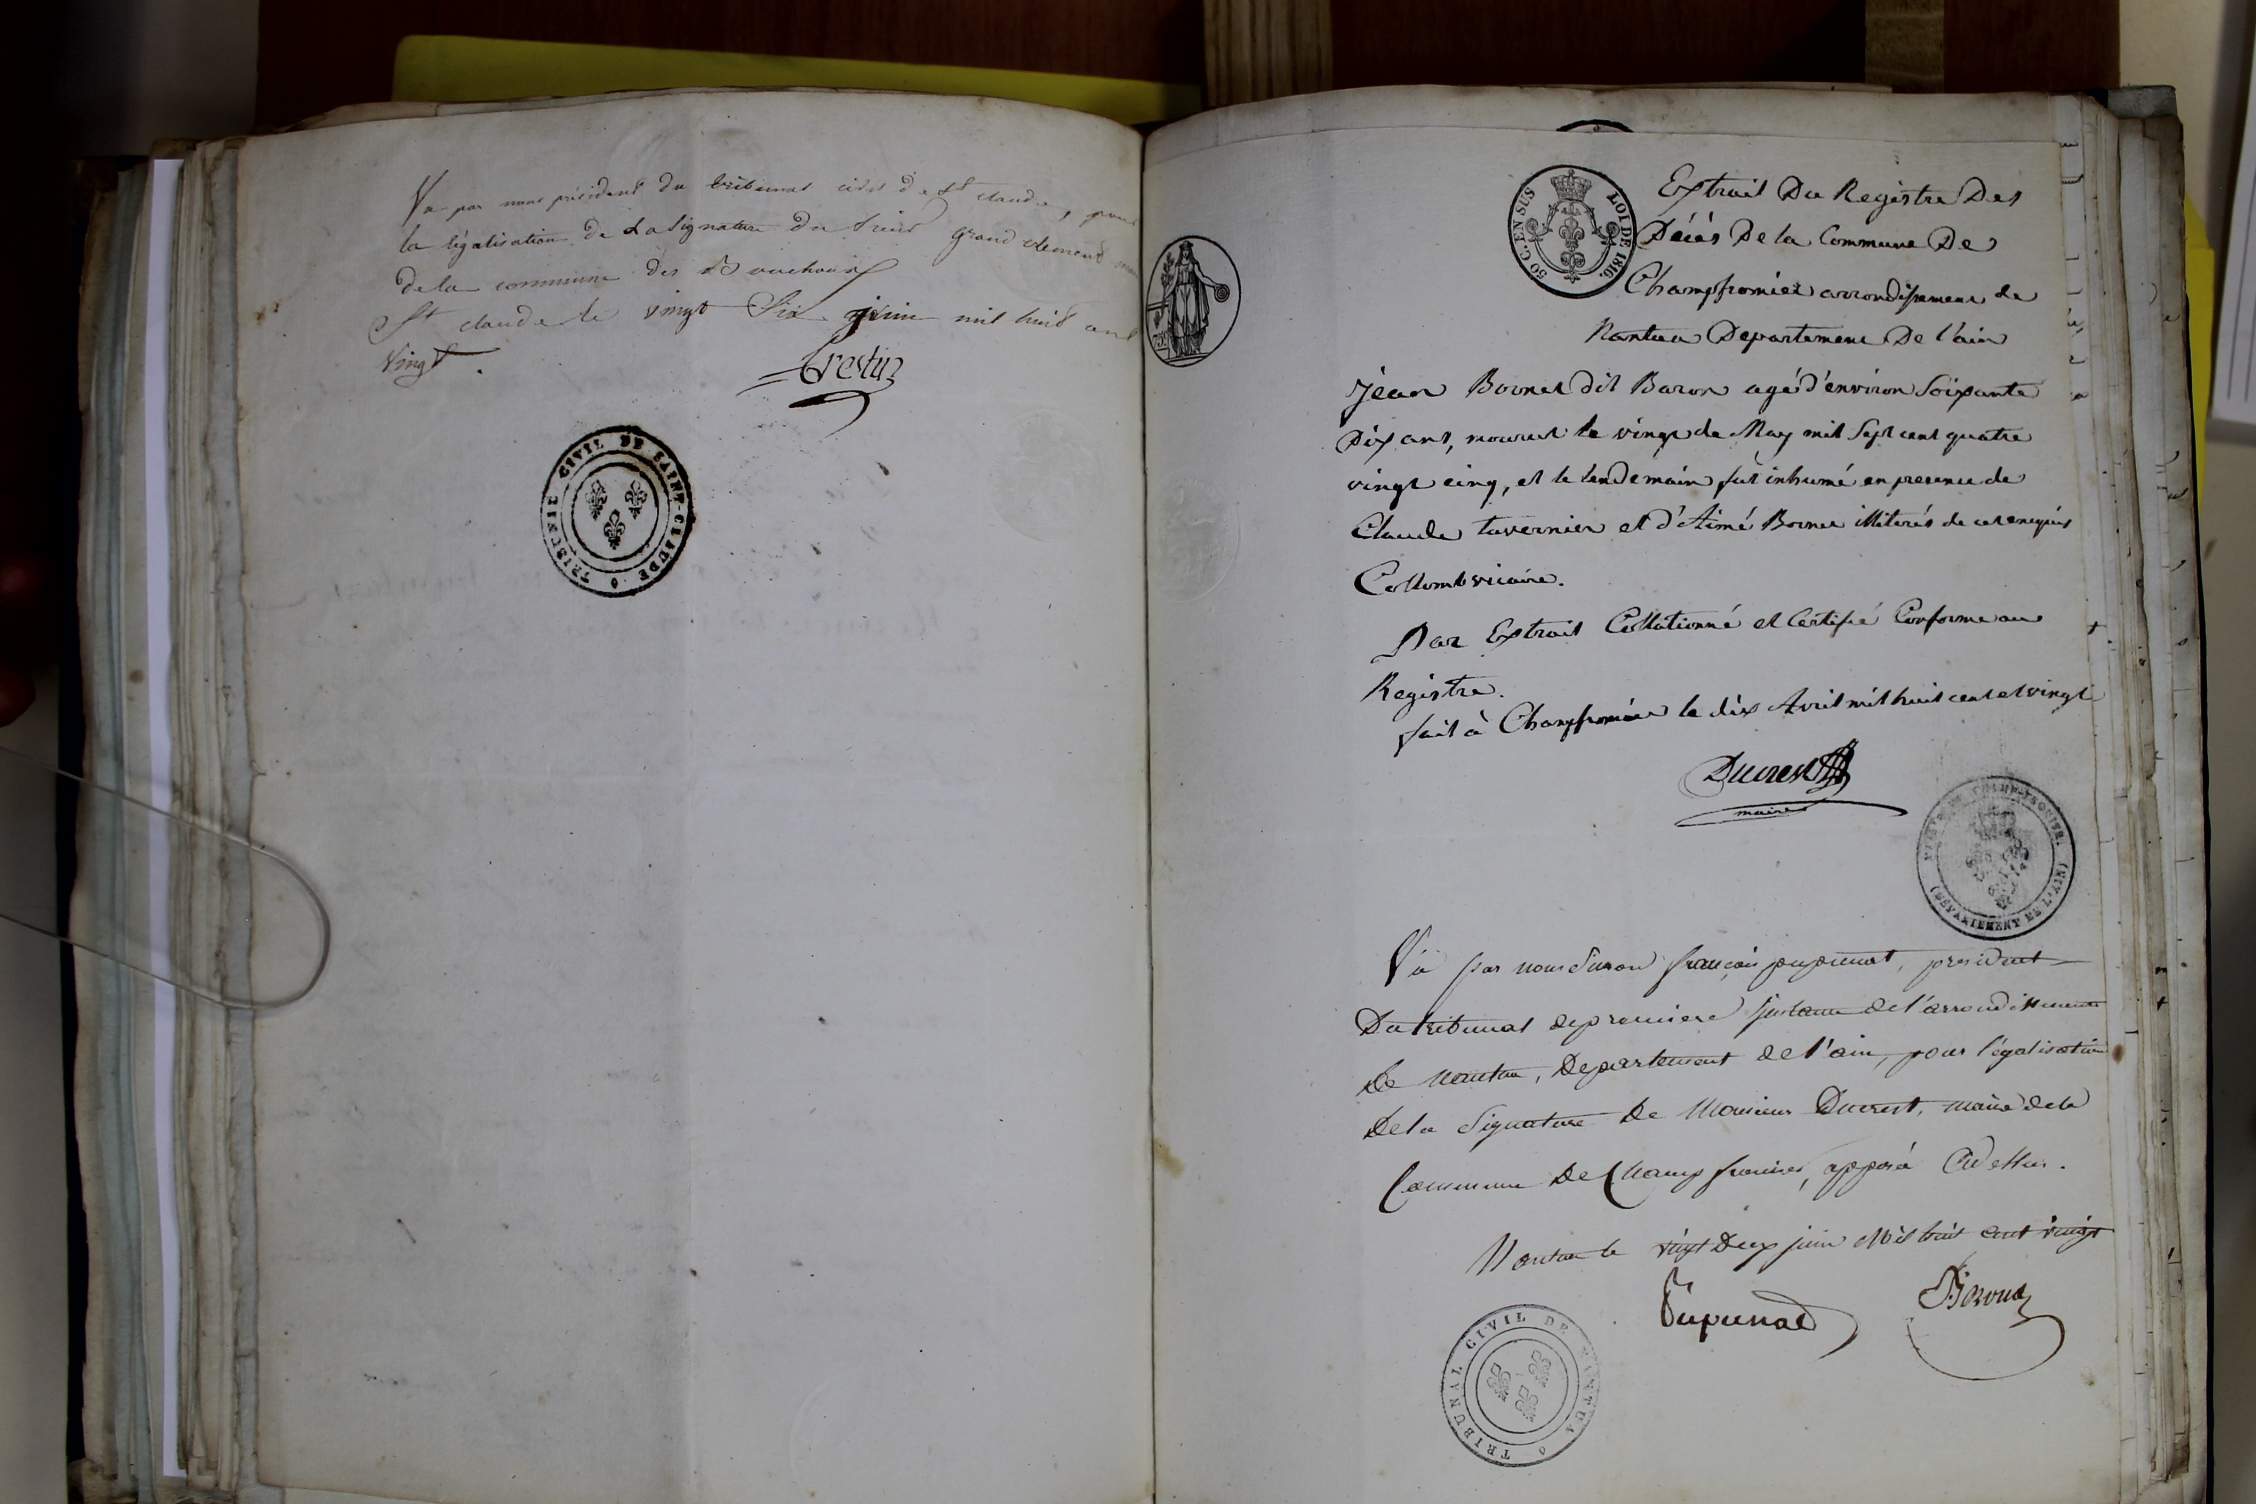 Vu par nous président du tribunal civil de St claude, pour
la légalisation de la signature du Sieur grand clement
de la commune des Bouchoux
St claude le vingt Six juin mil huit cent
vingt.
Crestin
TRIBUNAL CIVIL DE SAINT-CLAUDE
50 C. EN SUS LOI DE 1816.
Extrait Du Registre Des
Décès De la Commune De
Champfromier arrondissement de
Nantua Departement De l'ain
Jean Bornet dit Baron agé d'environ Soixante
Dix ans, mourut le vingt de May mil Sept cent quatre
vingt cinq, et le lendemain fut inhumé en presence de
Claude tavernier et d'Aimé Bornet illiterés de ce enquis
Collomb vicaire.
Par Extrait Collationné et Certifié Conforme au
Registre.
fait à Champfromier le dix Avril mil huit cent et vingt
Ducrest
maire
(DÉPARTEMENT DE L'AIN)
Vu par nous françois pupunat, president
Du tribunal de premiere Instance de l'arrondissement
De Nantua, Departement de l'ain, pour légalisation
De la Signature De Monsieur Ducrest, maire de la
Commune De Champfromier, apposé Cidessus.
Nantua le vingt Deux juin Mil huit cent vingt
Pupunat
TRIBUNAL CIVIL DE NANTUA